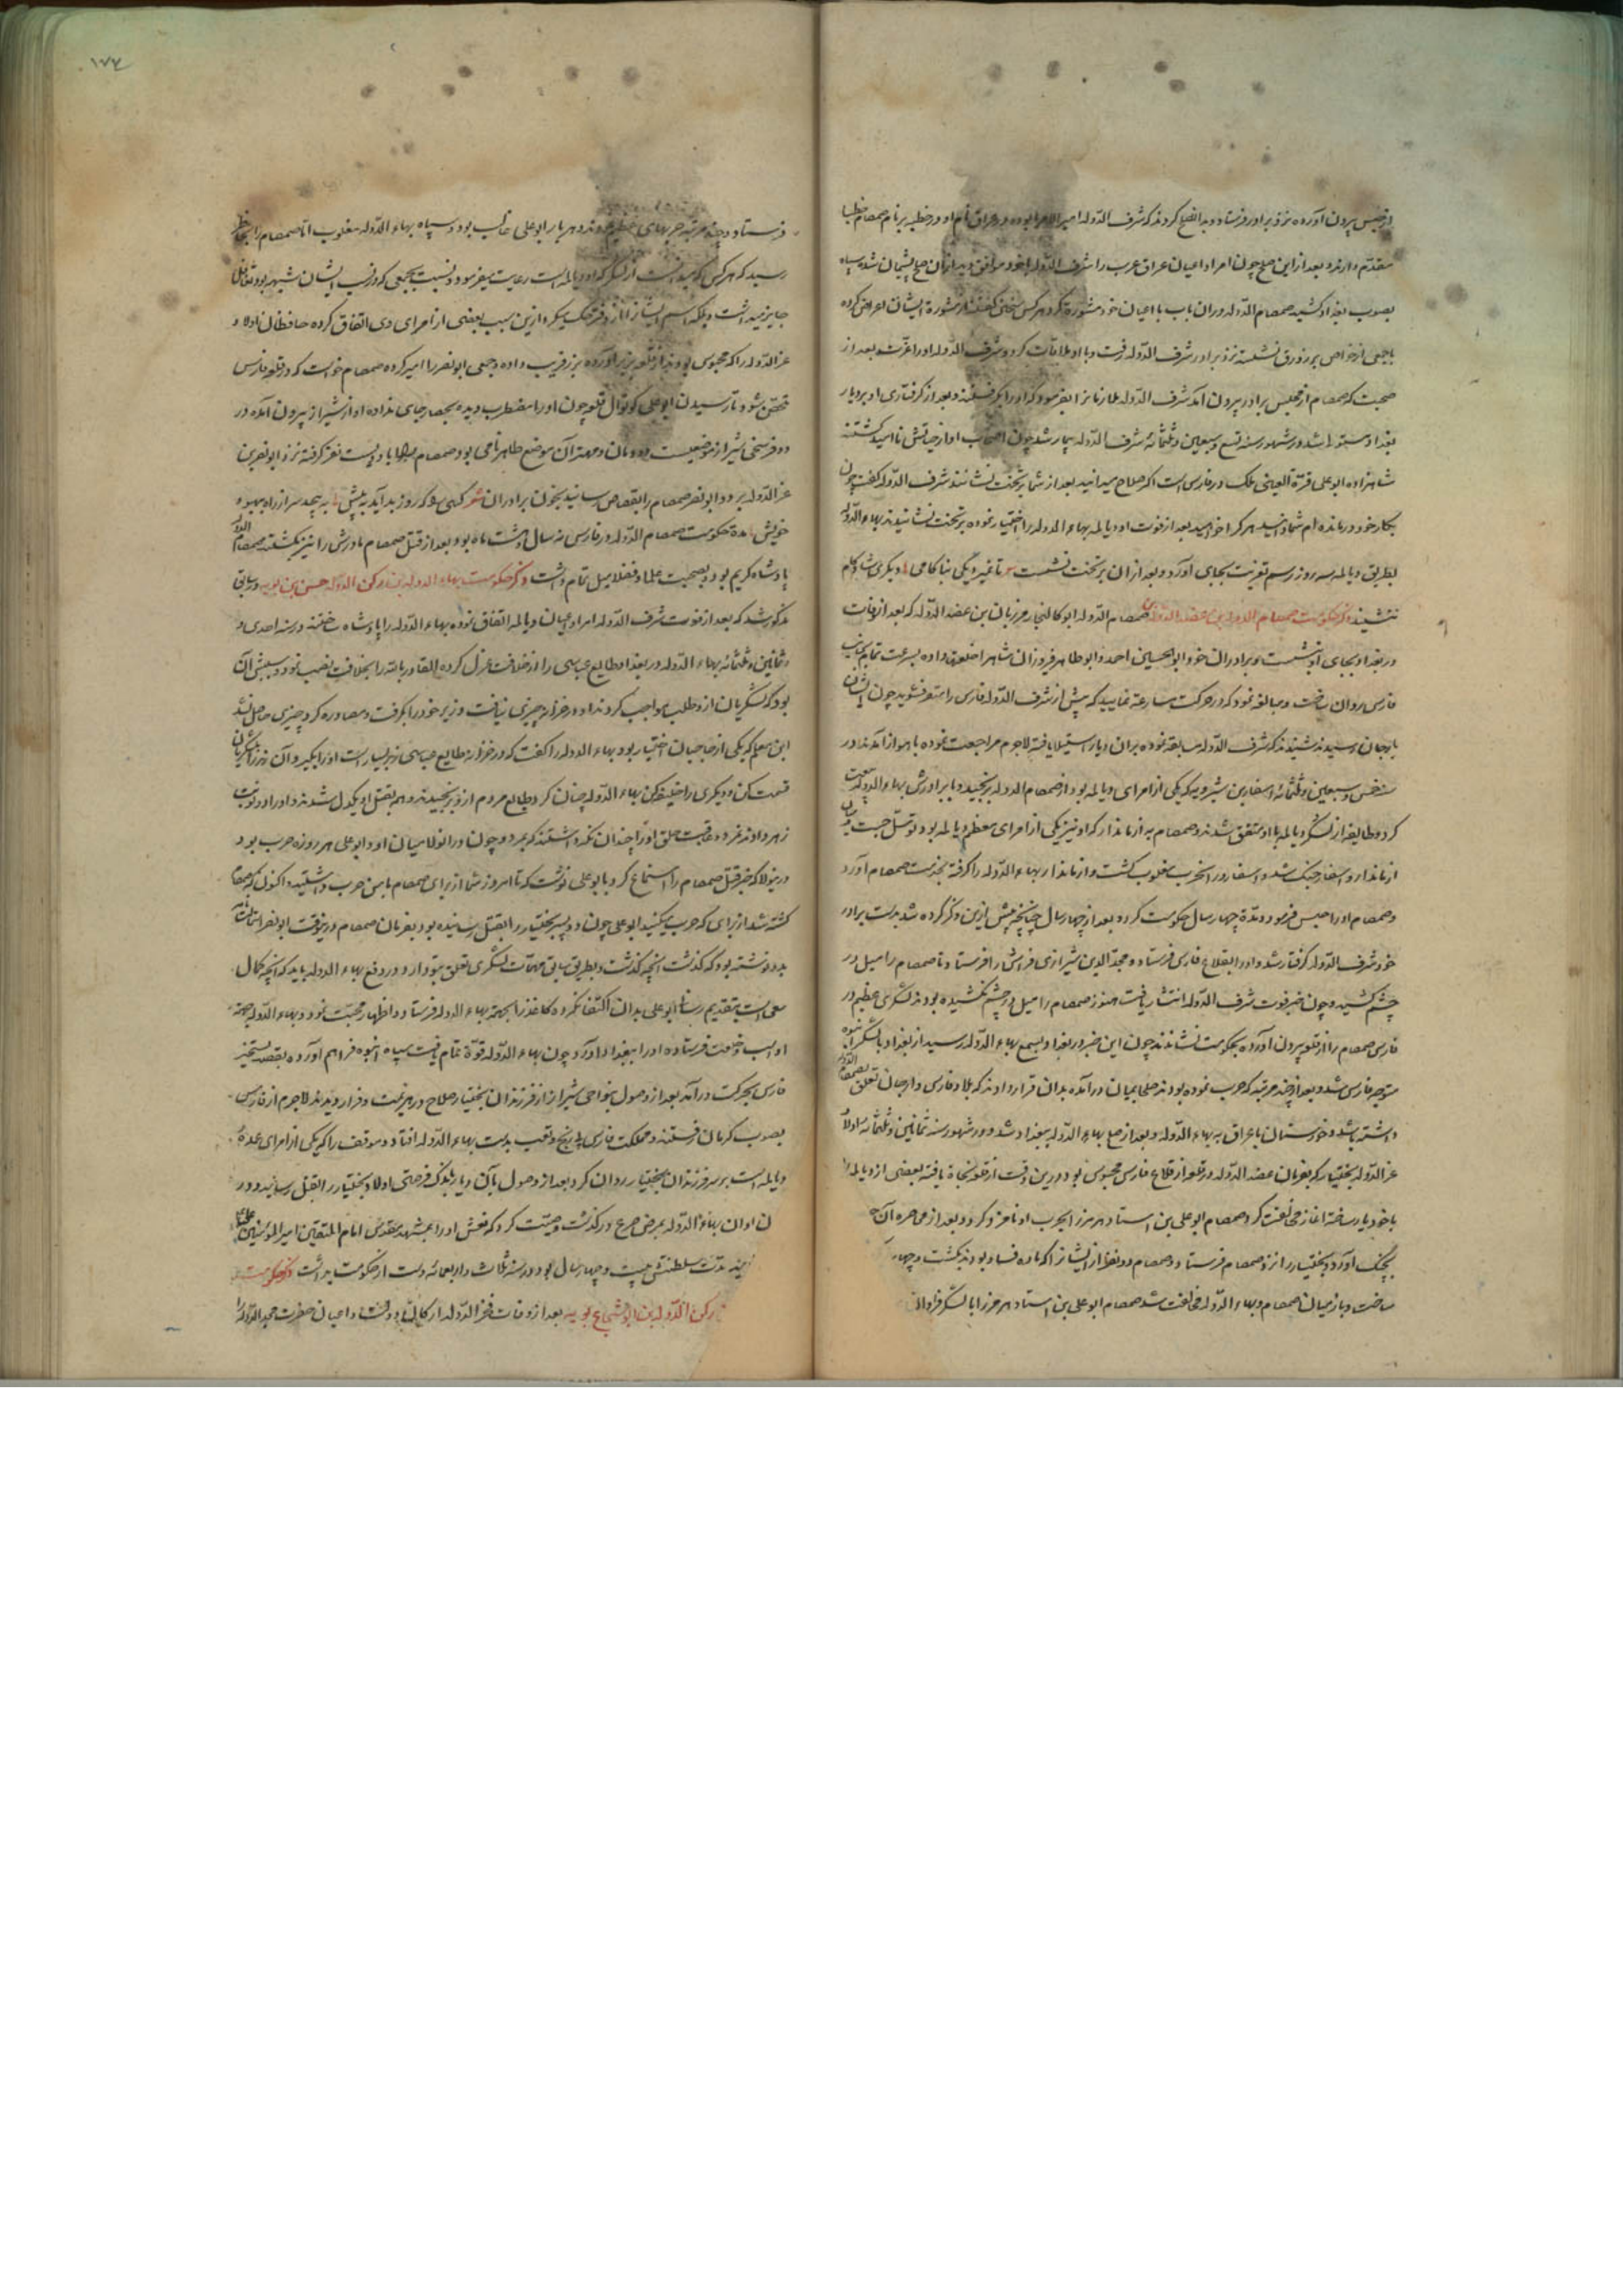 از حبس بیرون آورده نزد برادر فرستاد و بدا نصلح کردند که شرف الدوله امیر الامرا بوده در عراق نام او در خطبه بر نام صمصام
مقدم دارند و بعد از این صلح چون امرا و اعیان عراق عرب را شرف الدوله با خود موافق دید از آن صلح پشیمان شد سپاه
بصوب بغداد کشید صمصام الدوله در آن باب با اعیان خود مشورة کرد هر کس سخنی گفتند از مشورة ایشان اعراض کرده
با جمعی از خواص بر زورق نشسته نزد برادر شرف الدوله رفت و با او ملاقات کرد و شرف الدوله او را عزت بعد از
صحبت که صمصام از مجلس برادر بیرون آمد شرف الدوله ملازمانرا بفرمود که او را بگرفتند و بعد از گرفتاری او بر دیار
بغداد مستولی شد در شهور سنه تسع و سبعین و ثلثمائه شرف الدوله بیمار شد چون اصحاب او از حیاتش ناامید گشتند
شاهزاده ابو علی قرة العین ملک در فارس است اگر صلاح میدانید بعد از شما بر تخت نشانند شرف الدوله گفت چون
بکار خود درمانده ام شما دانید هر کرا خواهید بعد از فوت او دیالمه بهاء الدوله را اختیار نموده بر تخت نشانیدند بهاء الدوله
بطریق دیالمه سه روز رسم تعزیت بجای آورد و بعد از آن بر تخت نشست تا نمیرد یکی بناکامی دیگری شادکام
ننشیند ذکر حکومت صمصام الدوله بن عضد الدوله صمصام الدوله ابو کالنجار مرزبان بن عضد الدوله که بعد از وفات
در بغداد بجای او نشست و برادران خود ابو الحسین احمد و ابو طاهر فیروزان شاه را خلعت داده بسرعت تمام بجانب
فارس روان ساخت و مبالغه نمود که در حرکت مسارعة نمایید که پیش از شرف الدوله فارس را متصرف شوید چون ایشان
بارجان رسیدند شنیدند که شرف الدوله مسابقة نموده بر آن دیار استیلا یافته لاجرم مراجعت نموده باهواز آمدند و در
سنه خمس و سبعین و ثلثمائه اسفار بن شیرویه که یکی از امرای دیالمه بود از صمصام الدوله برنجید و با برادرش بهاء الدوله بیعت
کرد و طایفه از لشکر دیالمه با او متفق شدند و صمصام به از ماندار که او نیز یکی از امرای معظم دیالمه بود توسل جست میان
از ماندار و اسفار جنگ شد و اسفار در آن حرب مغلوب گشت و از ماندار بهاء الدوله را گرفته بخدمت صمصام آورد
و صمصام او را حبس فرمود و مدة چهار سال حکومت کرد و بعد از چهار سال چنانچه پیش ازین ذکر کرده شد بدست برادر
خود شرف الدوله گرفتار شد و او را بقلاع فارس فرستاد و مجد الدین شیرازی فراش را فرستاد تا صمصام را میل در
چشم کشید و چون خبر فوت شرف الدوله انتشار یافت هنوز صمصام را میل در چشم نکشیده بودند لشکری عظیم در
فارس صمصام را از قلعه بیرون آورده بحکومت نشاندند چون این خبر در بغداد بسمع بهاء الدوله رسید از بغداد با لشکر انبوه
متوجه فارس شد و بعد از چند مرتبه که حرب نموده بودند صلحا بمیان درآمده بدان قرار دادند که بلاد فارس و ارجان تعلق بصمصام الدوله
داشته باشد و خوزستان با عراق به بهاء الدوله و بعد از صلح بهاء الدوله ببغداد شد و در شهور سنه ثمانین و ثلثمائه اولاد
عز الدوله بختیار که بفرمان عضد الدوله در قلعه از قلاع فارس محبوس بود درین وقت از قلعه نجاة یافته بعضی از دیالمه را
با خود یار ساخته آغاز مخالفت کرد صمصام ابو علی بن استاد هرمز را بحرب او نامزد کرد و بعد از محاصره آن
بچنگ آورد و بختیار را نزد صمصام فرستاد و صمصام دو نفر از ایشانرا که ماده فساد بودند بکشت و چهار
ساخت و باز میان صمصام و بهاء الدوله مخالفت شد صمصام ابو علی بن استاد هرمز را با لشکر فراوان
۱۷۷
فرستاد و چند مرتبه حربهای عظیم کردند و هر بار ابو علی غالب بود و سپاه بهاء الدوله مغلوب اما صمصام را بخاطر
رسید که هر کس که میدانست از لشکر که او دیالمه است رعایت میفرمود و نسبت بجمعی که در نسب ایشان شبهه بود تغافل
جایز نمیداشت و بلکه اسم ایشانرا از دفتر حک میکرد ازین سبب بعضی از امرای وی اتفاق کرده محافظان اولاد
عز الدوله را که محبوس بودند از قلعه بزیر آورده بزر فریب داده و جمعی ابو نصر را امیر کرده صمصام خواست که در قلعه فارس
متحصن شود تا رسیدن ابو علی کوتوال قلعه چون او را مضطرب دیده بحصار جای نداده او از شیراز بیرون آمده در
دو فرسخی شیراز موضعیست دودمان و مهتر آن موضع طاهر نامی بود صمصام را با دویست نفر گرفته نزد ابو نصر بن
عز الدوله برد و ابو نصر صمصام را بقصاص رسانید بخون برادران شعر کسی کو کند روز بد آید به پیش نه پیچد سر از راد میوه
خویش مدة حکومت صمصام الدوله در فارس نه سال و هشت ماه بود و بعد از قتل صمصام مادرش را نیز بکشتند صمصام الدوله
پادشاه کریم بود و بصحبت علما و فضلا میل تمام داشت ذکر حکومت بهاء الدوله بن رکن الدوله حسن بن بویه در سابق
مذکور شد که بعد از فوت شرف الدوله امرا و اعیان دیالمه اتفاق نموده بهاء الدوله را پادشاه ساختند در سنه احدی و
ثمانین و ثلثمائه بهاء الدوله در بغداد طایع عباسی را از خلافت عزل کرده القادر بالله را بخلافت نصب نمود و سبب آن
بود که لشکریان ازو طلب مواجب کردند او در خزانه چیزی نیافت وزیر خود را بگرفت و مصادره کرد چیزی حاصل نشد
ابن معلم که یکی از حاجبان اختیار بود بهاء الدوله را گفت که در خزانه طایع عباسی زر بسیار است او را بگیر و آن زر را بر لشکریان
قسمت کن و دیگری را خلیفه کن بهاء الدوله چنان کرد و طایع مردم ازو برنجیدند و همه بقتل او یکدل شدند و او را دو نوبت
زهر دادند نمرد و عاقبت حلق او را چندان نگه داشتند که بمرد و چون در انولا میان او و ابو علی هر روزه حرب بود
درینولا که خبر قتل صمصام را استماع کرد بابو علی نوشت که تا امروز شما از برای صمصام با من حرب داشتید اکنون که صمصام
کشته شد از برای که حرب میکنید ابو علی چون دو پسر بختیار را بقتل رسانیده بود بفرمان صمصام درینوقت ابو نصر استمالت
بدو نوشته بود که گذشت آنچه گذشت و بطریق سابق مهمات لشکری تعلق بتو دارد و در دفع بهاء الدوله باید که آنچه کمال
سعی است بتقدیم رسانی ابو علی بدان التفات نکرده کاغذ را بجهة بهاء الدوله فرستاد و اظهار محبت نمود و بهاء الدوله بجهة
او اسب و خلعت فرستاده او را ببغداد آورد چون بهاء الدوله قوة تمام یافت سپاه انبوه فراهم آورده بقصد تسخیر
فارس بحرکت درآمد بعد از وصول بنواحی شیراز از فرزندان بختیار صلاح در هزیمت و فرار دیدند لاجرم از فارس
بصوب کرمان رفتند و مملکت فارس بی رنج و تعب بدست بهاء الدوله افتاد و موفق را که یکی از امرای عمده
دیالمه است بر سر فرزندان بختیار روان کرد بعد از وصول بآن دیار باندک فرصتی اولاد بختیار را بقتل رسانید و در
ان اوان بهاء الدوله بمرض صرع درگذشت وصیت کرد که نعش او را بمشهد مقدس امام المتقین امیر المؤمنین علی
مدت سلطنتش بیست و چهار سال بود و در سنه ثلاث و اربعمائه دست از حکومت برداشت ذکر حکومت
رکن الدوله بن ابو شجاع بویه بعد از وفات فخر الدوله ارکان دولت و اعیان حضرت مجد الدوله را